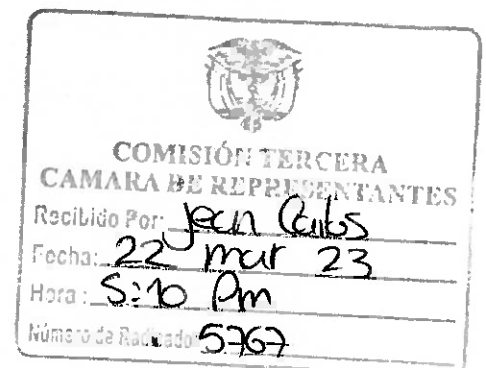 COMISIÓN TERCERA
CAMARA DE REPRESENTANTES
Recibido Por: Jean Carlos
Fecha: 22 mar 23
Hora: 5:10 Pm
Número de Radicado 5767